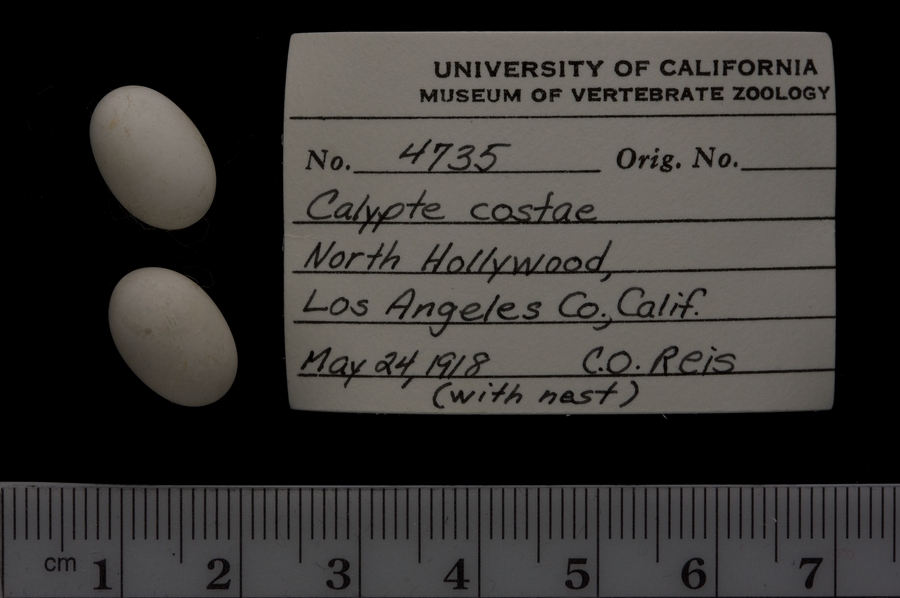 UNIVERSITY OF CALIFORNIA
MUSEUM OF VERTEBRATE ZOOLOGY
No. 4735 Orig. No.
Calypte costae
North Hollywood,
Los Angeles Co., Calif.
May 24, 1918 C.O. Reis
(with nest)
cm 1 2 3 4 5 6 7